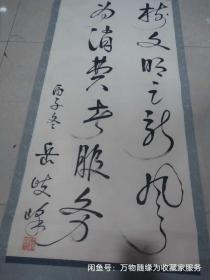 树文明之新风
为消费者服务
丙子冬 岳岐峰
闲鱼号：万物随缘为收藏家服务